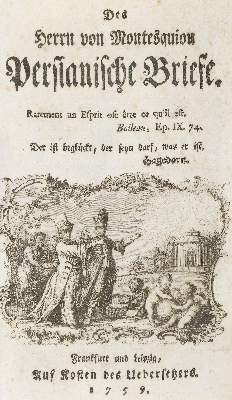 Des
Herrn von Montesquiou
Persianische Briefe.
Rarement un Esprit ose être ce qu'il est.
Boileau, Ep. IX. 74.
Der ist beglückt, der seyn darf, was er ist.
Hagedorn.
Frankfurt und Leipzig,
Auf Kosten des Uebersetzers.
1759.